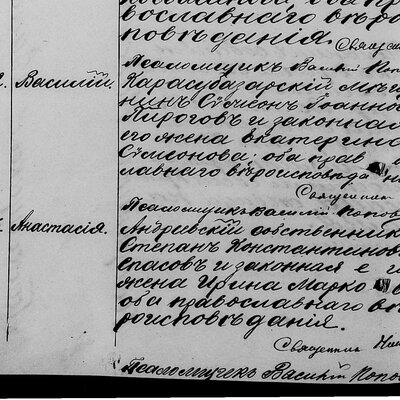 вославнаго вѣро
повѣданія.
Священ
Псаломщикъ Василій Поп
Василій.
Карасубазарскій мѣщ
нинъ Симеонъ Іоанно
Пироговъ и законная
его жена Екатерина
Симеонова; оба прав
славнаго вѣроисповѣда
Священник
Псаломщикъ Василій Попов
Анастасія.
Андреевскій собственник
Степанъ Константинов
Спасовъ и законная е
жена Ирина Марко
оба православнаго вѣ
роисповѣданія.
Священник Ник
Псаломщикъ Василій Попо